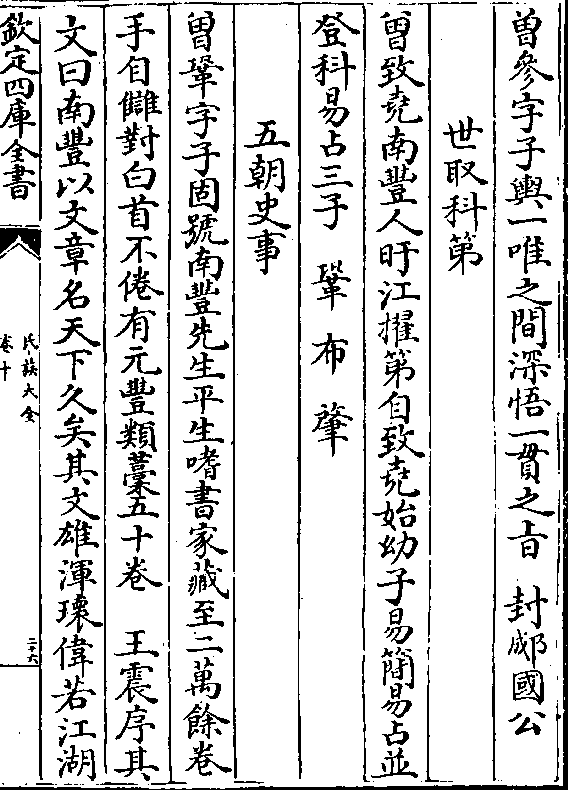 曾參字子輿一唯之間深悟一貫之㫖　封郕國公
世取科第
曾致堯南豐人旴江擢第自致堯始幼子易簡易占並
登科易占三子　鞏　布　肇
五朝史事
曾鞏字子固號南豐先生平生嗜書家藏至二萬餘卷
手自讎對白首不倦有元豐類藁五十卷　王震序其
文曰南豐以文章名天下久矣其文雄渾瓌偉若江湖
欽定四庫全書
氏族大全
卷十
二十六